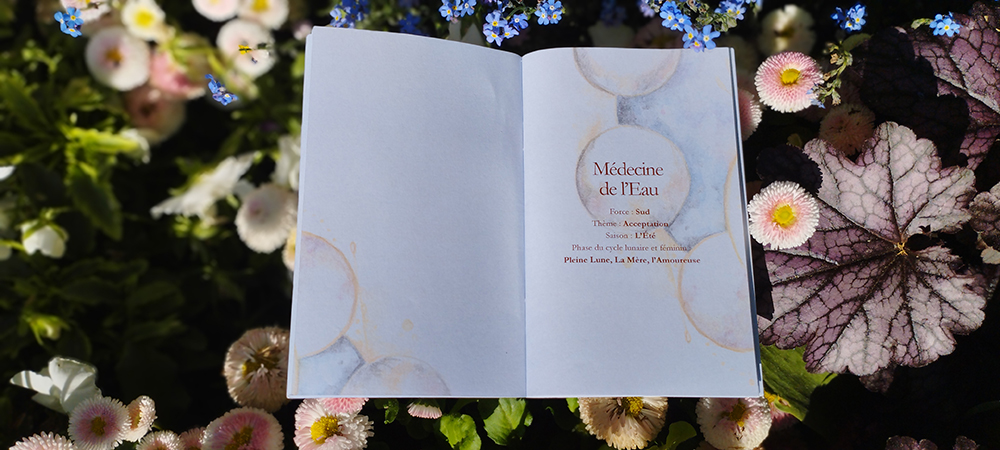 Médecine
de l'Eau
Force : Sud
Thème : Acceptation
Saison : L'Été
Phase du cycle lunaire et féminin :
Pleine Lune, La Mère, l'Amoureuse